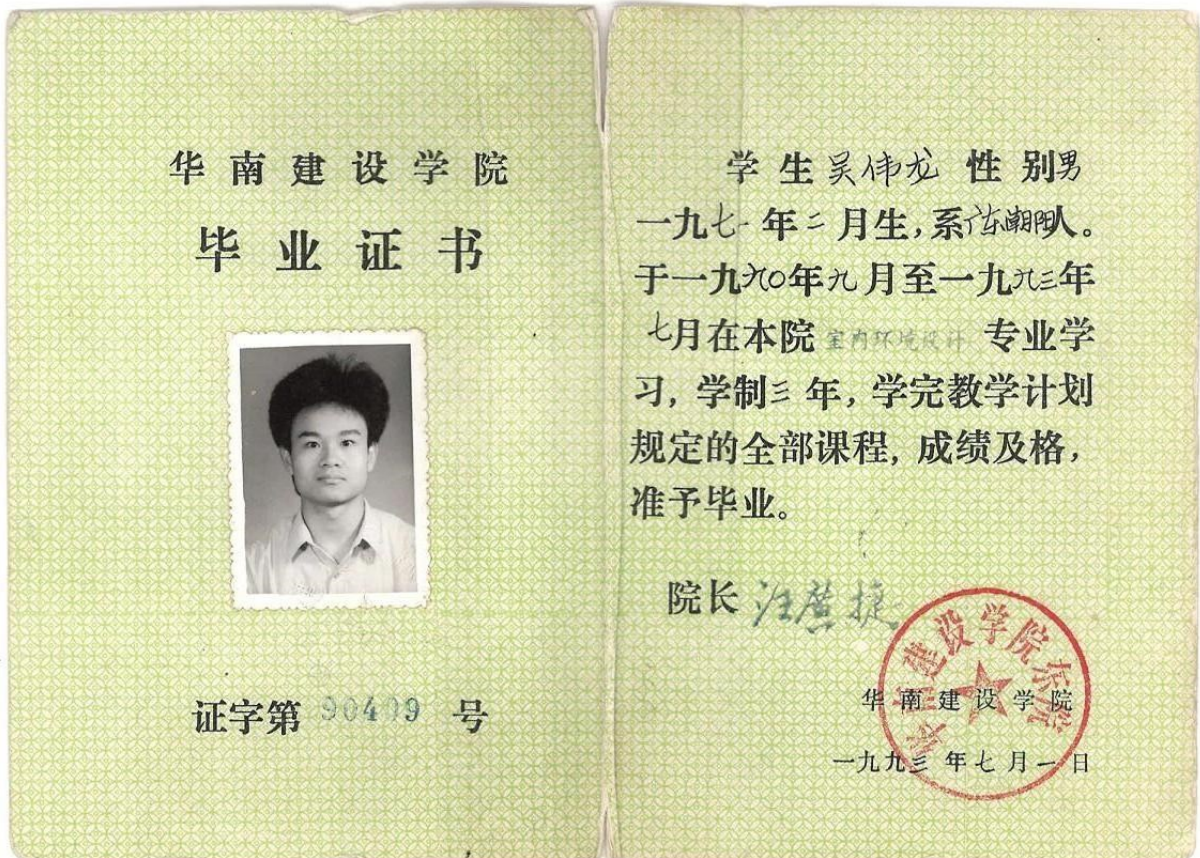 华南建设学院
毕业证书
证字第 90409 号
学生吴伟龙 性别男
一九七一年二月生,系广东潮阳人。
于一九九〇年九月至一九九三年
七月在本院 室内环境设计 专业学
习,学制三年,学完教学计划
规定的全部课程,成绩及格,
准予毕业。
院长 汪广捷
华南建设学院东院
华南建设学院
一九九三年七月一日